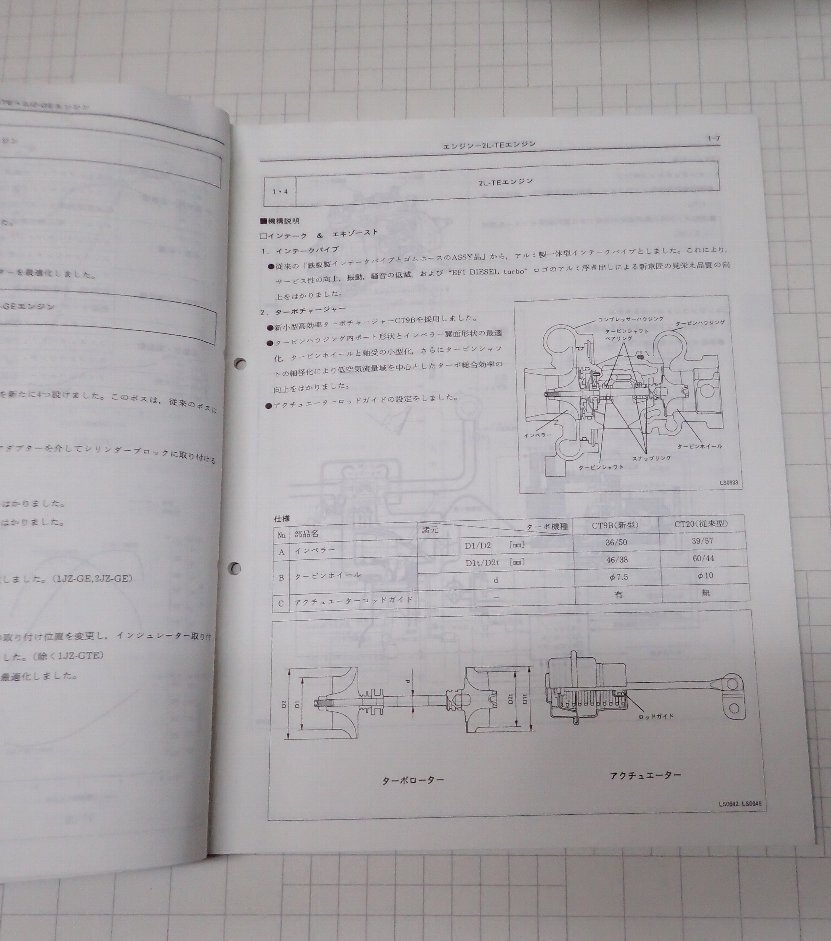 エンジン
た。
ターを最適化しました。
-GEエンジン
を新たに4つ設けました。このボスは，従来のボスに
アダプターを介してシリンダーブロックに取り付ける
はかりました。
はかりました。
しました。(1JZ-GE,2JZ-GE)
取り付け位置を変更し，インシュレーター取り付
した。(除く1JZ-GTE)
最適化しました。
エンジン－2L-TEエンジン
1-7
1・4
2L-TEエンジン
■機構説明
□インテーク ＆ エキゾースト
1．インテークパイプ
●従来の「鉄板製インテークパイプとゴムホースのASSY品」から，アルミ製一体型インテークパイプとしました。これにより，
サービス性の向上，振動，騒音の低減，および“EFI DIESEL turbo”ロゴのアルミ浮き出しによる新意匠の見栄え品質の向
上をはかりました。
2．ターボチャージャー
●新小型高効率ターボチャージャーCT9Bを採用しました。
●タービンハウジング内ポート形状とインペラー翼面形状の最適
化，タービンホイールと軸受の小型化，さらにタービンシャフ
トの細径化により低空気流量域を中心としたターボ総合効率の
向上をはかりました。
●アクチュエーターロッドガイドの設定をしました。
コンプレッサーハウジング
タービンシャフト
ベアリング
タービンハウジング
インペラー
タービンシャフト
スナップリング
タービンホイール
LS0633
仕様
№ 部品名 諸元 ターボ機種 CT9B(新型) CT20(従来型)
A インペラー D1/D2 [㎜] 36/50 39/57
B タービンホイール D1t/D2t [㎜] 46/38 60/44
d φ7.5 φ10
C アクチュエーターロッドガイド － 有 無
D2
D1
d
D2t
D1t
ロッドガイド
ターボローター
アクチュエーター
LS0642, LS0645